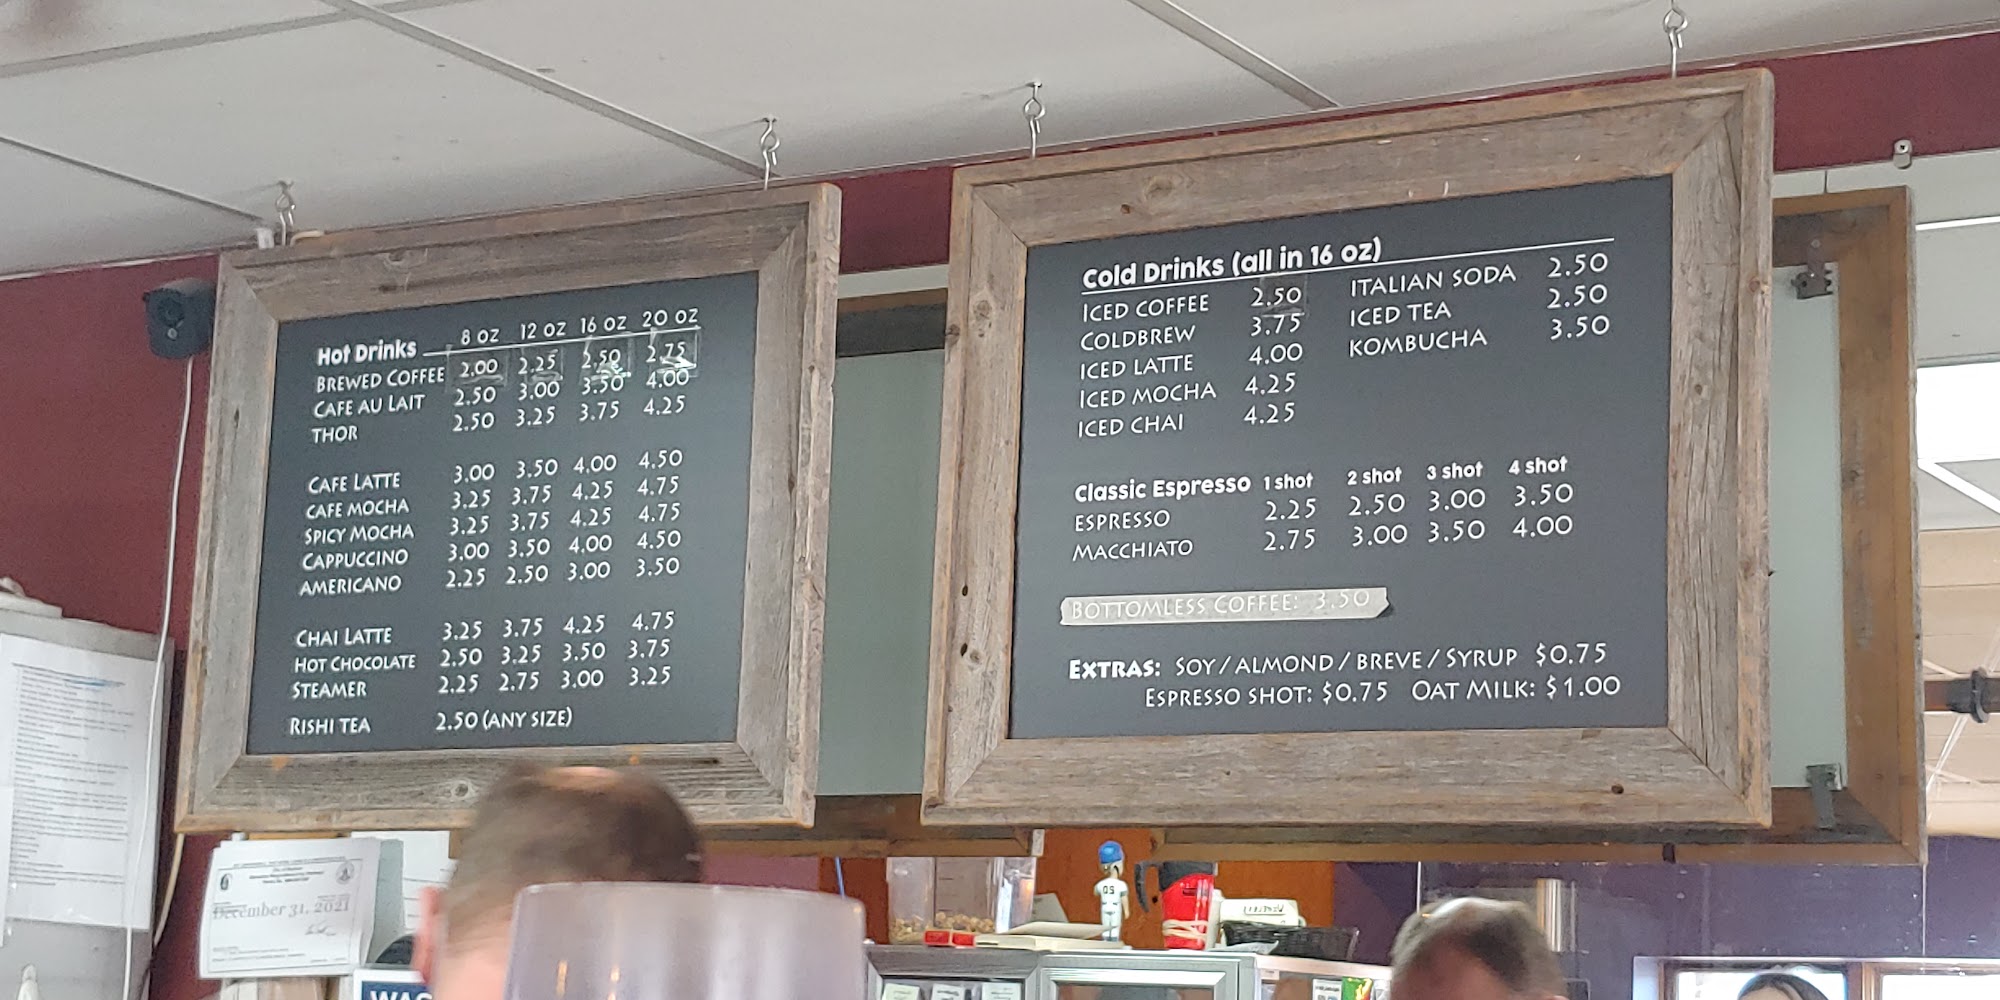 Hot Drinks 8 oz 12 oz 16 oz 20 oz
BREWED COFFEE 2.00 2.25 2.50 2.75
CAFE AU LAIT 2.50 3.00 3.50 4.00
THOR 2.50 3.25 3.75 4.25
CAFE LATTE 3.00 3.50 4.00 4.50
CAFE MOCHA 3.25 3.75 4.25 4.75
SPICY MOCHA 3.25 3.75 4.25 4.75
CAPPUCCINO 3.00 3.50 4.00 4.50
AMERICANO 2.25 2.50 3.00 3.50
CHAI LATTE 3.25 3.75 4.25 4.75
HOT CHOCOLATE 2.50 3.25 3.50 3.75
STEAMER 2.25 2.75 3.00 3.25
RISHI TEA 2.50 (ANY SIZE)
Cold Drinks (all in 16 oz)
ICED COFFEE 2.50 ITALIAN SODA 2.50
COLDBREW 3.75 ICED TEA 2.50
ICED LATTE 4.00 KOMBUCHA 3.50
ICED MOCHA 4.25
ICED CHAI 4.25
Classic Espresso 1 shot 2 shot 3 shot 4 shot
ESPRESSO 2.25 2.50 3.00 3.50
MACCHIATO 2.75 3.00 3.50 4.00
BOTTOMLESS COFFEE: 3.50
EXTRAS: SOY / ALMOND / BREVE / SYRUP $0.75
ESPRESSO SHOT: $0.75 OAT MILK: $1.00
December 31, 2021
05